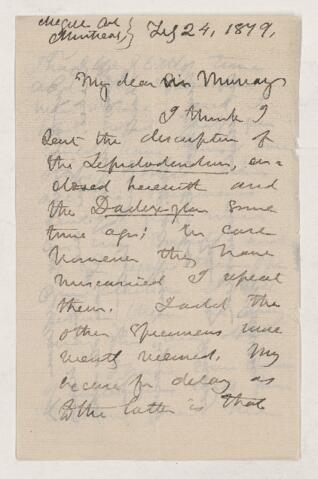 McGill Col } Feby 24, 1879,
Montreal }
My dear Mr. Murray
I think I
sent the description of
the Lepidodendron, en-
closed herewith and
the Dadoxylon some
time ago; in case
however they have
miscarried I repeat
them. I add the
other specimens more
recently received. My
excuse for delay as
to the latter is that